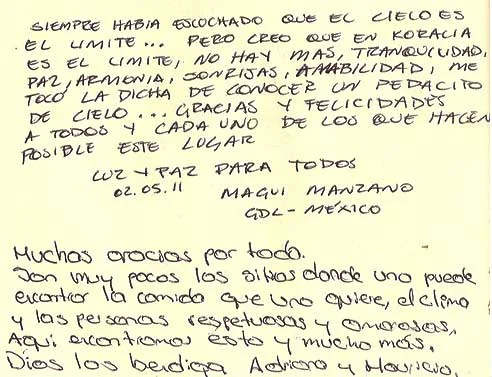 SIEMPRE HABIA ESCUCHADO QUE EL CIELO ES
EL LIMITE... PERO CREO QUE EN KORALIA
ES EL LIMITE, NO HAY MAS, TRANQUILIDAD,
PAZ, ARMONIA, SONRISAS, AMABILIDAD, ME
TOCÓ LA DICHA DE CONOCER UN PEDACITO
DE CIELO... GRACIAS Y FELICIDADES
A TODOS Y CADA UNO DE LOS QUE HACEN
POSIBLE ESTE LUGAR
LUZ Y PAZ PARA TODOS
02.05.11 MAGUI MANZANO
GDL - MÉXICO
Muchas gracias por todo.
Son muy pocos los sitios donde uno puede
encontrar la comida que uno quiere, el clima
y las personas respetuosas y amorosas,
Aqui encontramos esto y mucho más.
Dios los bendiga Adriana y Mauricio.